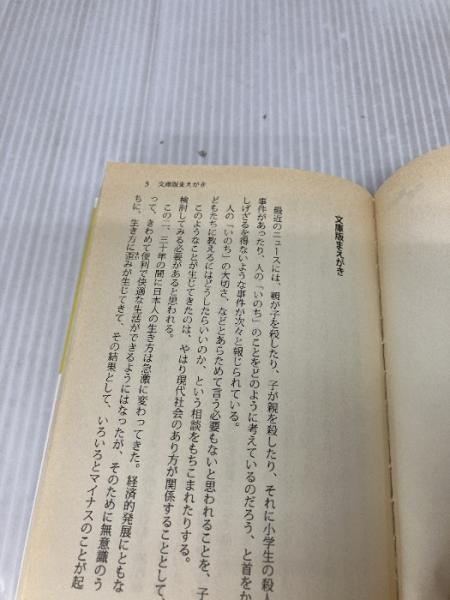 3 文庫版まえがき
文庫版まえがき
最近のニュースには、親が子を殺したり、子が親を殺したり、それに小学生の殺人
事件があったり、人の「いのち」のことをどのように考えているのだろう、と首をか
しげざるを得ないような事件が次々と報じられている。
人の「いのち」の大切さ、などとあらためて言う必要もないと思われることを、子
どもたちに教えるにはどうしたらいいのか、という相談をもちこまれたりする。
このようなことが生じてきたのは、やはり現代社会のあり方が関係することとして、
検討してみる必要があると思われる。
この二、三十年の間に日本人の生き方は急激に変わってきた。経済的発展にともな
って、きわめて便利で快適な生活ができるようにはなったが、そのために無意識のう
ちに、生き方に歪みが生じてきて、その結果として、いろいろとマイナスのことが起